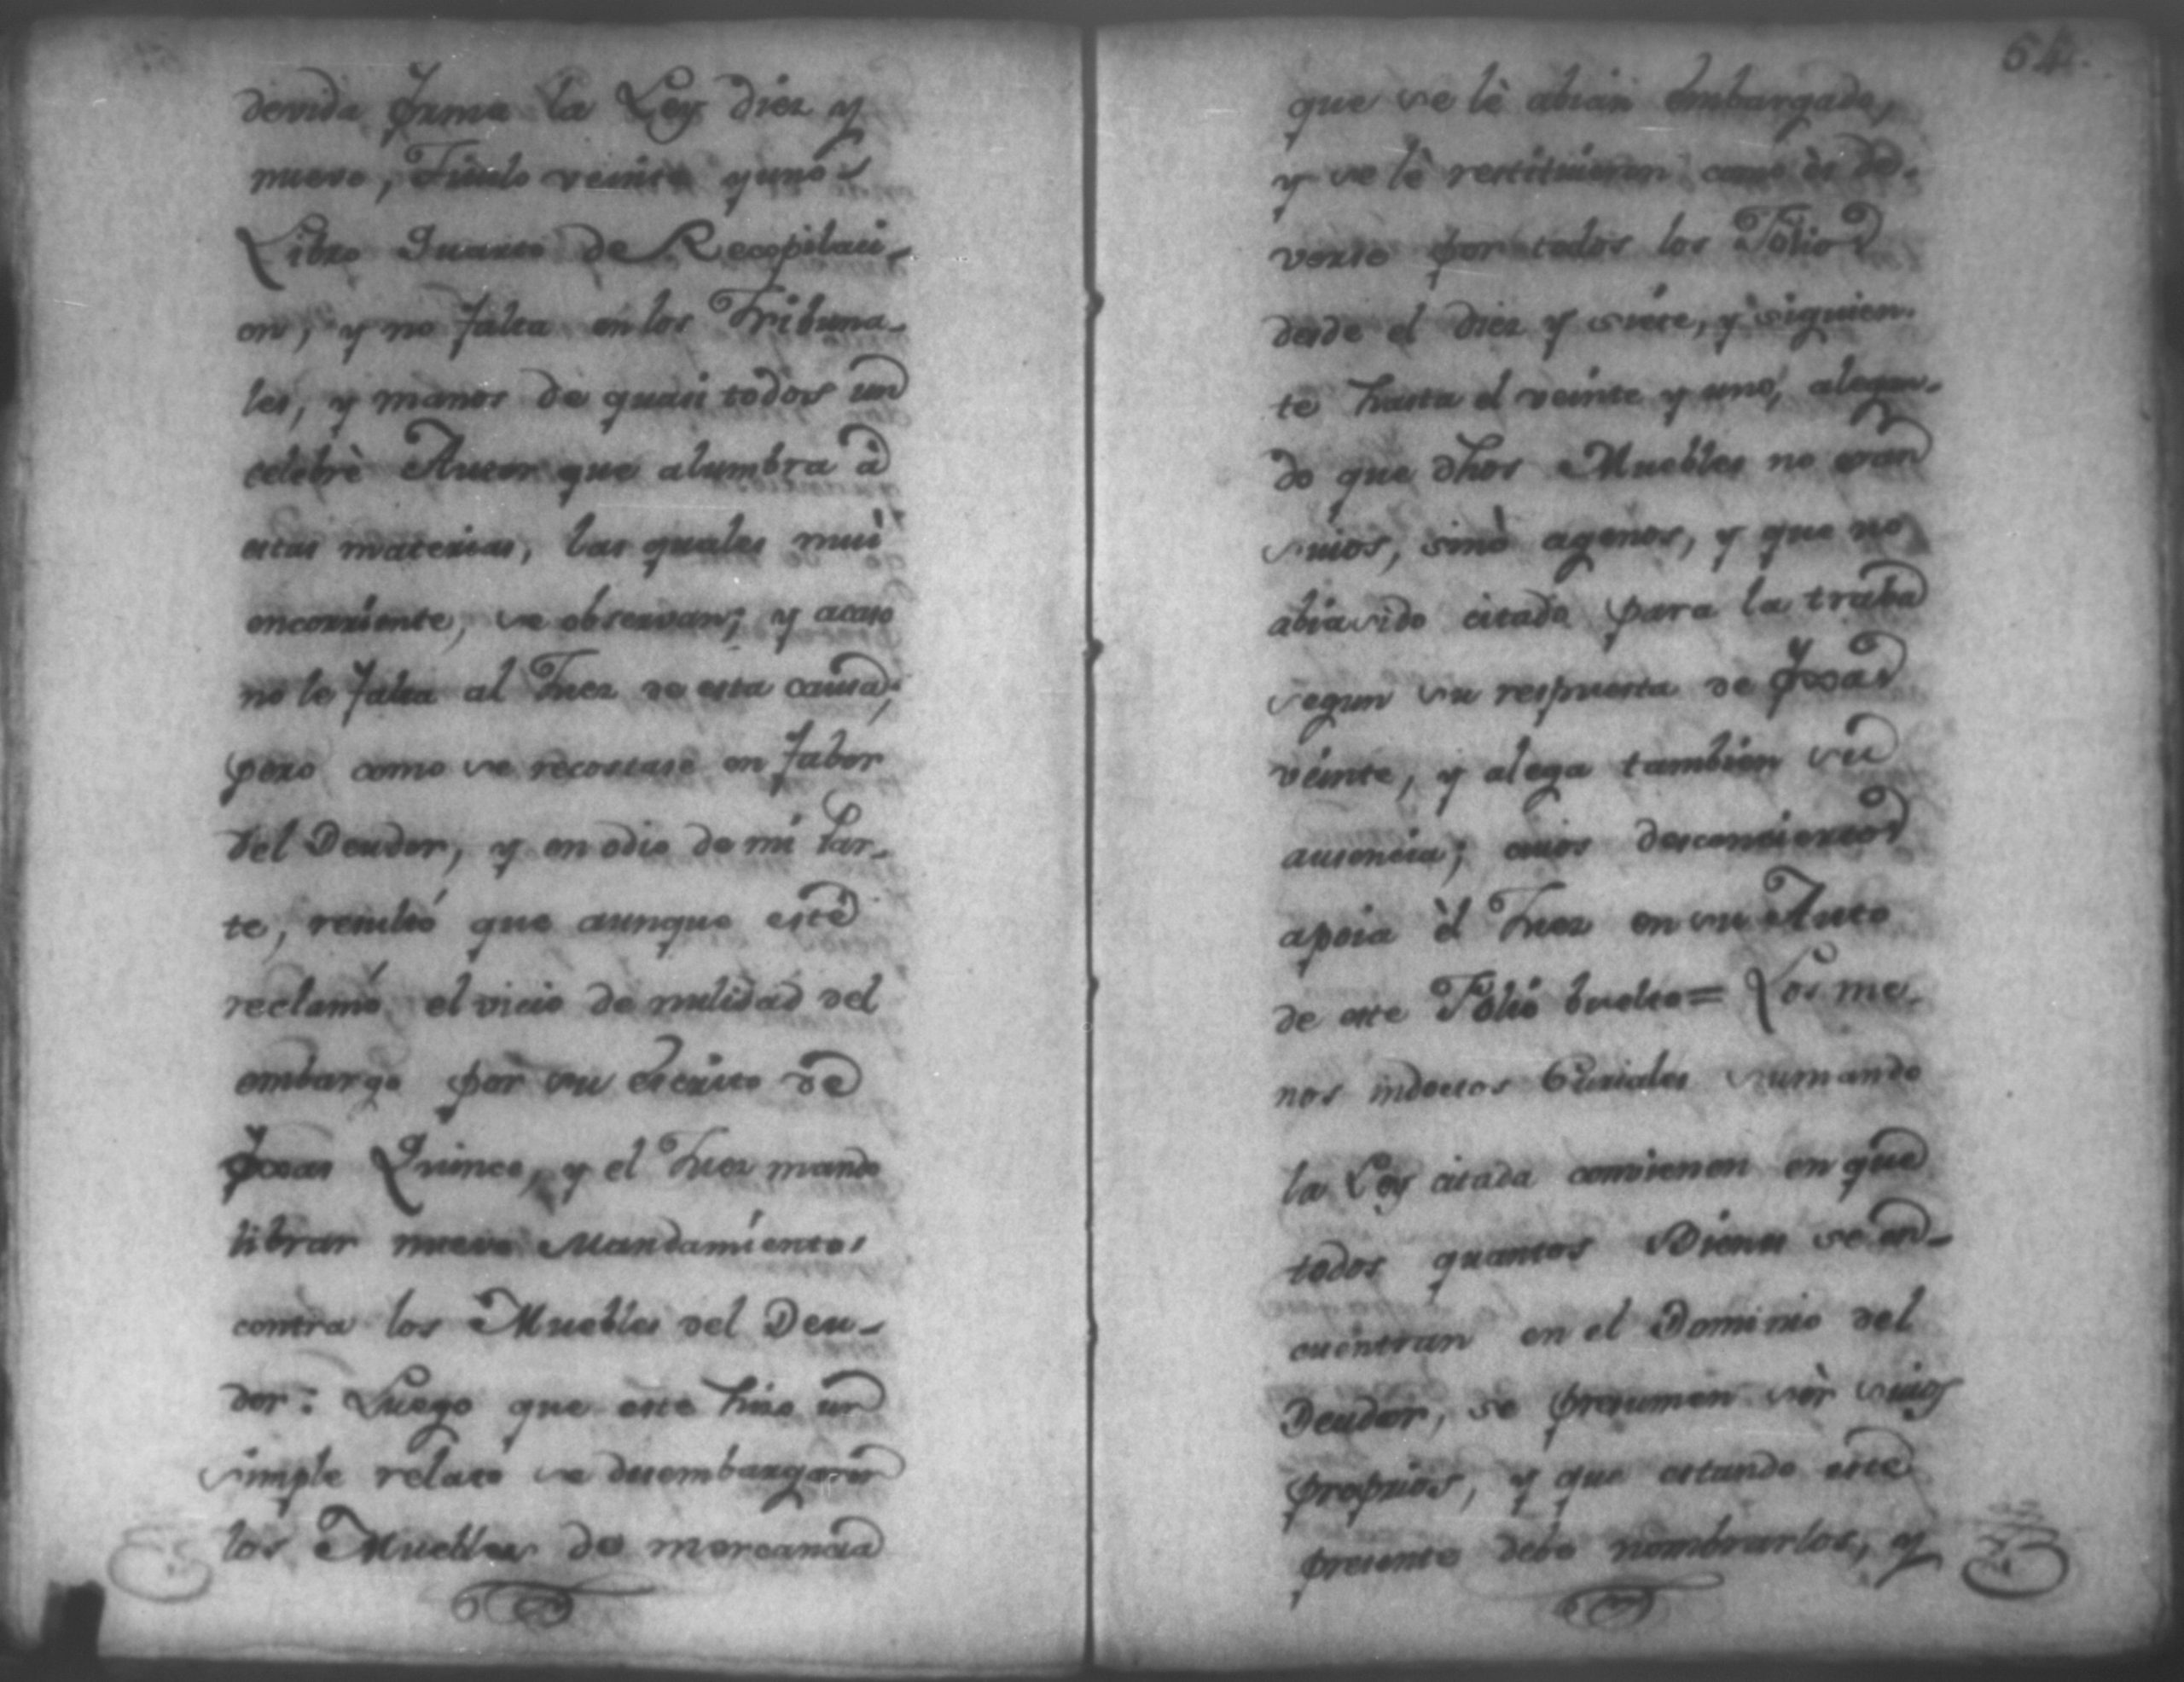 devida forma la Ley diez y
nueve, Titulo veinte y uno
Libro Quarto de Recopilaci-
on, y no falta en los Tribuna-
les, y manos de quasi todos un
celebrè Autor que alumbra à
estas materias, las quales mui
encorriente, se observan; y acaso
no le falta al Juez de esta causa;
pero como se recostase en fabor
del Deudor, y en odio de mi Par-
te, resultó que aunque este
reclamó el vicio de nulidad del
embargo por su escrito de
foxas Quince, y el Juez mando
librar nuevo Mandamiento
contra los Muebles del Deu-
dor: Luego que este hizo un
simple relato se desembargaron
los Muebles de mercancia
54.
que se lè abian embargado,
y se lè restituieron como ès de
verse por todos los Folios
desde el diez y siete, y siguien-
te hasta el veinte y uno, alegan-
do que dhos Muebles no eran
suios, sinò agenos, y que no
abia sido citado para la traba
segun su respuesta de foxas
veinte, y alega tambien su
ausencia; cuios desconciertos
apoia èl Juez en su Auto
de este Folio buelto = Los me-
nos indoctos Curiales sumando
la Ley citada convienen en que
todos quantos Bienes se en-
cuentran en el Dominio del
Deudor, se presumen sèr suios
proprios, y que estando este
presente debe nombrarlos, y